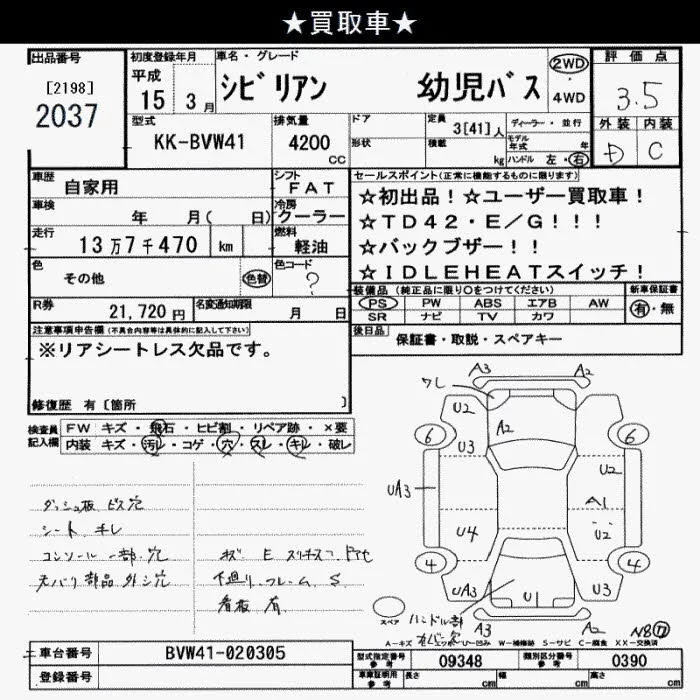 ★買取車★
出品番号
[2198]
2037
初度登録年月
平成
15 3月
車名・グレード
シビリアン 幼児バス
2WD
4WD
評価点
3.5
外装 内装
D C
型式
KK-BVW41
排気量
4200
CC
ドア
形状
定員 3[41]人
積載 kg
ディーラー・並行
モデル年式 年
ハンドル 左・右
車歴
自家用
シフト
FAT
車検
年 月( 日)
冷房
クーラー
走行
13万7千470 km
燃料
軽油
色
その他
色替
色コード
?
R券
21,720円
名変通知期限
月 日
セールスポイント(正常に機能するものに限ります)
☆初出品!☆ユーザー買取車!
☆TD42・E/G!!!
☆バックブザー!!
☆IDLEHEATスイッチ!
装備品 (純正品に限り○をつけてください)
PS PW ABS エアB AW
SR ナビ TV カワ
新車保証書
有・無
後日品
保証書・取説・スペアキー
注意事項申告欄(不具合内容等は具体的に記入して下さい)
※リアシートレス欠品です。
修復歴 有〔箇所 〕
検査員記入欄
FW キズ・飛石・ヒビ割・リペア跡・×要
内装 キズ・汚れ・コゲ・穴・スレ・キレ・破レ
ダッシュ板 ビス穴
シート キレ
コンソール 一部 穴
部品 外シ穴
キズ E
下廻り、フレーム、S
看板 有
A3 A2
ワレ
U2
A2
6 6
U3
U2
UA3
A1
U4
U2
4 4
UA3
U1
U3
スペア
ハンドル部
A3
A2
N8⑰
A-キズ U-凹ミ W-補修跡 S-サビ C-腐食 XX-交換済
車台番号
BVW41-020305
登録番号
型式指定番号
参考
09348
類別区分番号
参考
0390
車庫証明用
参考
長さ cm
幅 cm
高さ cm